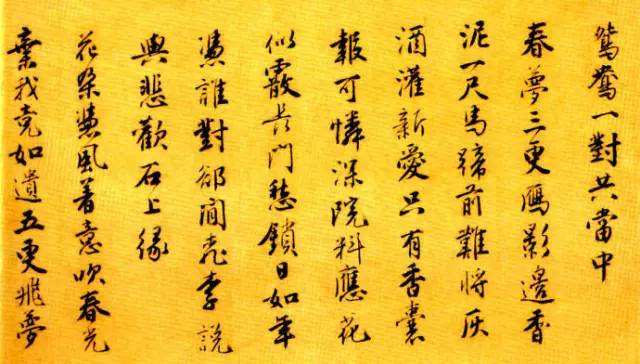 鴛鴦一對共當中
春夢三更雁影邊香
泥一尺馬蹄前難將灰
酒灌新愛只有香囊
報可憐深院料應花
似霰長門愁鎖日如年
憑誰對卻閒桃李說
與悲歡石上緣
花朵憑風着意吹春光
棄我竟如遺五更飛夢